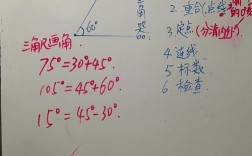 60°
三角尺画角.
75°=30°+45°.
105°=45°+60°
15°=45°-30°.
角
器
2. 重合(点线
3. 定点(分清内外)
4. 连线
5. 标数
6. 检查